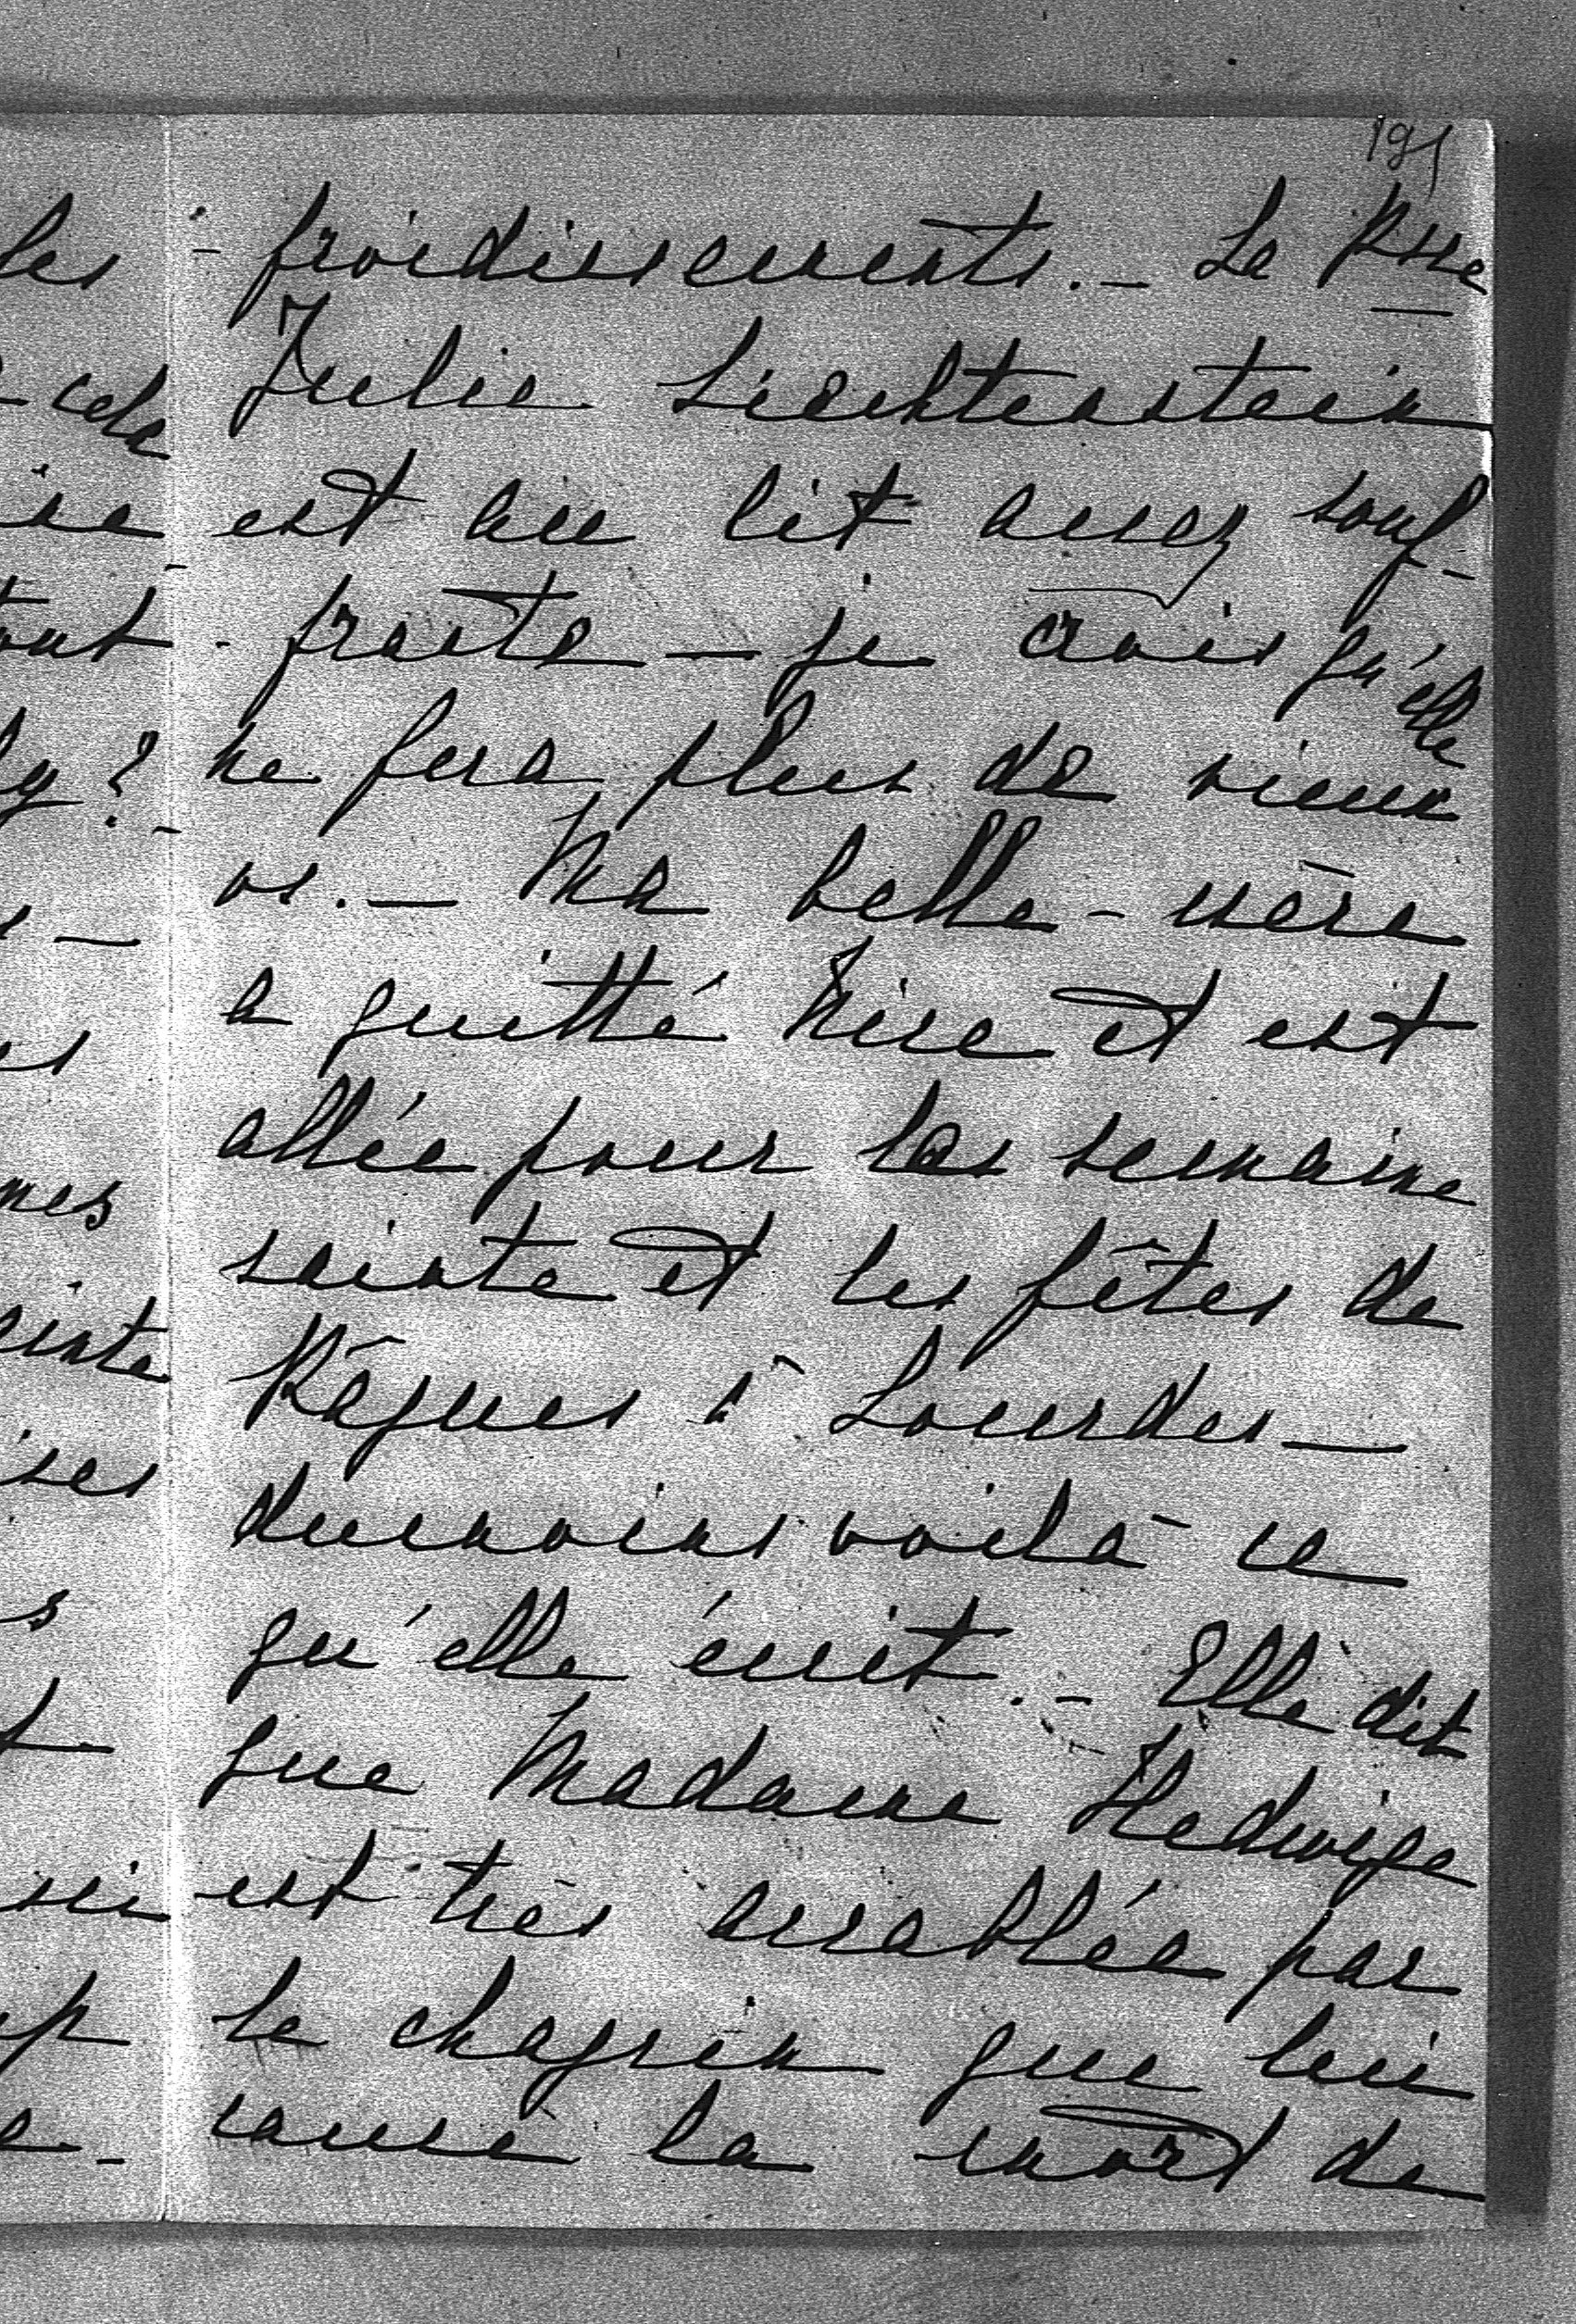 195
- froidissements. - La Psse
Julie Liechtenstein
est au lit assez souf-
- frante — je crois qu'elle
ne fera plus de vieux
os. — Ma belle-mère
a quitté Nice et est
allée pour la semaine
sainte et les fêtes de
Pâques à Lourdes —
dumoins voilà ce
qu'elle écrit. - Elle dit
que Madame Hedwige
est très accablée par
le chagrin que lui
cause la mort de
les
cela
tout
?
mes